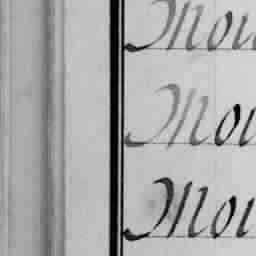 Mou
Mou
Mou